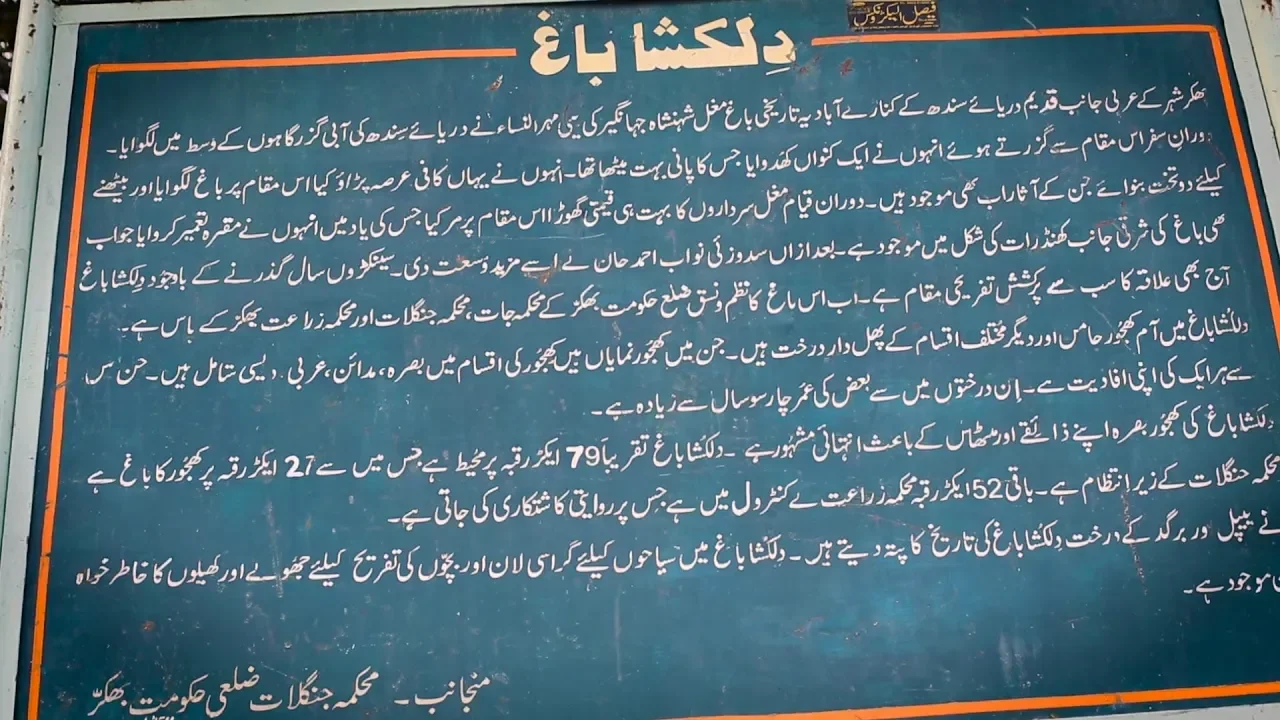 فیصل الیکٹرونکس
دِلکشا باغ
بھکر شہر کے غربی جانب قدیم دریائے سندھ کے کنارے آباد یہ تاریخی باغ مغل شہنشاہ جہانگیر کی بیٹی مہر النساء نے دریائے سِندھ کی آبی گزرگاہوں کے وسط میں لگوایا۔
دورانِ سفر اس مقام سے گزرتے ہوئے انہوں نے ایک کنواں کھدوایا جس کا پانی بہت میٹھا تھا۔ انہوں نے یہاں کافی عرصہ پڑاؤ کیا اس مقام پر باغ لگوایا اور بیٹھنے
کیلئے دو تخت بنوائے جن کے آثار اب بھی موجود ہیں۔ دوران قیام مغل سرداروں کا بہت ہی قیمتی گھوڑا اس مقام پر مر گیا جس کی یاد میں انہوں نے مقبرہ تعمیر کروایا جو اب
بھی باغ کی شرقی جانب کھنڈرات کی شکل میں موجود ہے۔ بعد ازاں سدوزئی نواب احمد خان نے اسے مزید وُسعت دی۔ سینکڑوں سال گذرنے کے باوجود دِلکشا باغ
آج بھی علاقہ کا سب سے پُرکشش تفریحی مقام ہے۔ اب اس باغ کا نظم و نسق ضلع حکومت بھکر کے محکمہ جات، محکمہ جنگلات اور محکمہ زراعت بھکر کے پاس ہے۔
دلکُشا باغ میں آم کھجور جامن اور دیگر مُختلف اقسام کے پھل دار درخت ہیں۔ جن میں کھجور نمایاں ہیں کھجُور کی اقسام میں بصرہ، مدائن، عربی۔ دیسی شامل ہیں۔ جن میں
سے ہر ایک کی اپنی افادیت ہے۔ اِن درختوں میں سے بعض کی عمر چار سو سال سے زیادہ ہے۔
دِلکشا باغ کی کھجُور بصرہ اپنے ذائقے اور مٹھاس کے باعث انتہائی مشہُور ہے۔ دلکُشا باغ تقریباً 79 ایکڑ رقبہ پر محیط ہے جس میں سے 27 ایکڑ رقبہ پر کھجور کا باغ ہے
محکمہ جنگلات کے زیرِ انتظام ہے۔ باقی 52 ایکڑ رقبہ محکمہ زراعت کے کنٹرول میں ہے جس پر روایتی کاشتکاری کی جاتی ہے۔
نے پیپل اور برگد کے درخت دِلکُشا باغ کی تاریخ کا پتہ دیتے ہیں۔ دِلکُشا باغ میں سیاحوں کیلئے گراسی لان اور بچّوں کی تفریح کیلئے جھولے اور کھیلوں کا خاطر خواہ
موجود ہے۔
منجانب۔ محکمہ جنگلات ضلعی حکومت بھکرّ